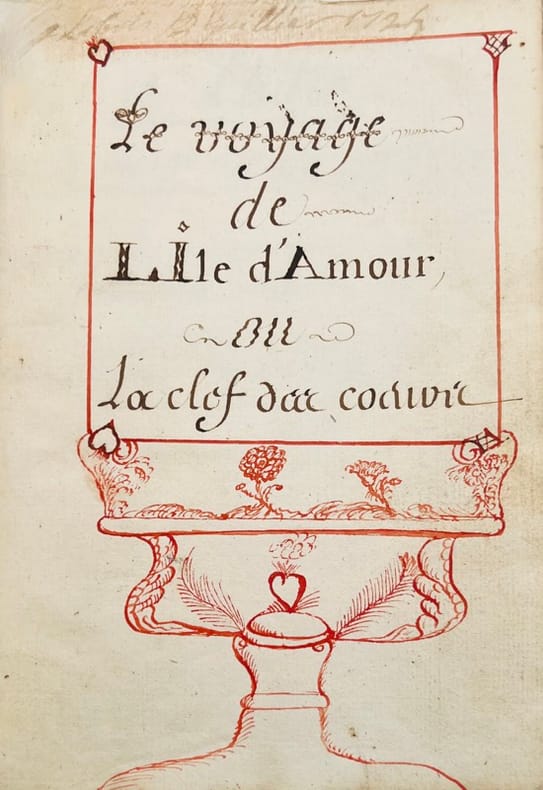 Le voyage
de
L'Île d'Amour,
ou
La clef des coeurs